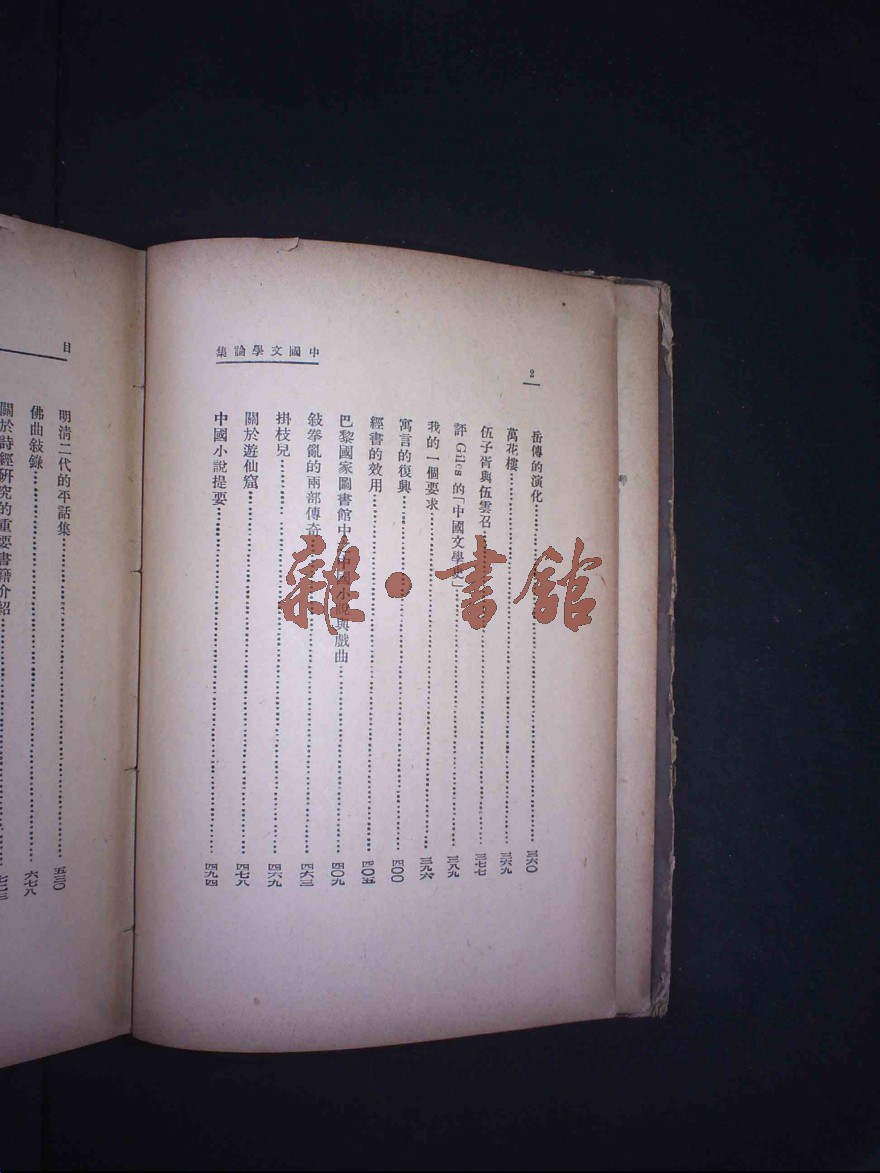 2
中國文學論集
岳傳的演化……三六〇
萬花樓……三六九
伍子胥與伍雲召……三七七
評 Giles 的「中國文學史」……三八九
我的一個要求……三九六
寓言的復興……四〇〇
經書的效用……四〇五
巴黎國家圖書館中 中國小說與戲曲……四〇九
敍拳亂的兩部傳奇……四六三
掛枝兒……四六九
關於遊仙窟……四七八
中國小說提要……四九四
目
明清二代的平話集……五三〇
佛曲敍錄……六七八
關於詩經研究的重要書籍介紹……七二三
雜·書館